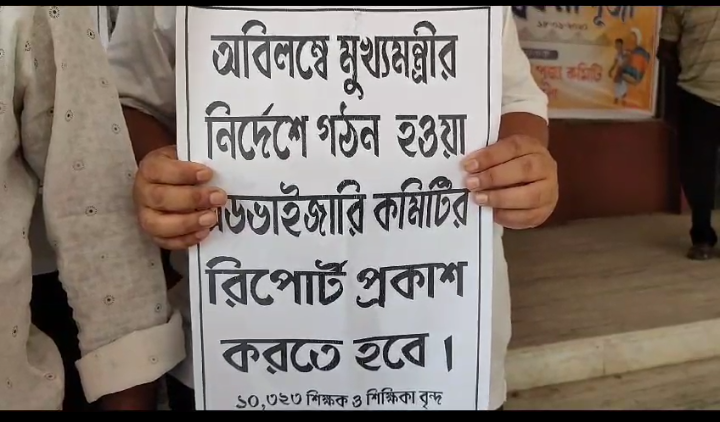 অবিলম্বে মুখ্যমন্ত্রীর
নির্দেশে গঠন হওয়া
এডভাইজারি কমিটির
রিপোর্ট প্রকাশ
করতে হবে।
১০,৩২৩ শিক্ষক ও শিক্ষিকা বৃন্দ
পূজা
পূজা কমিটি